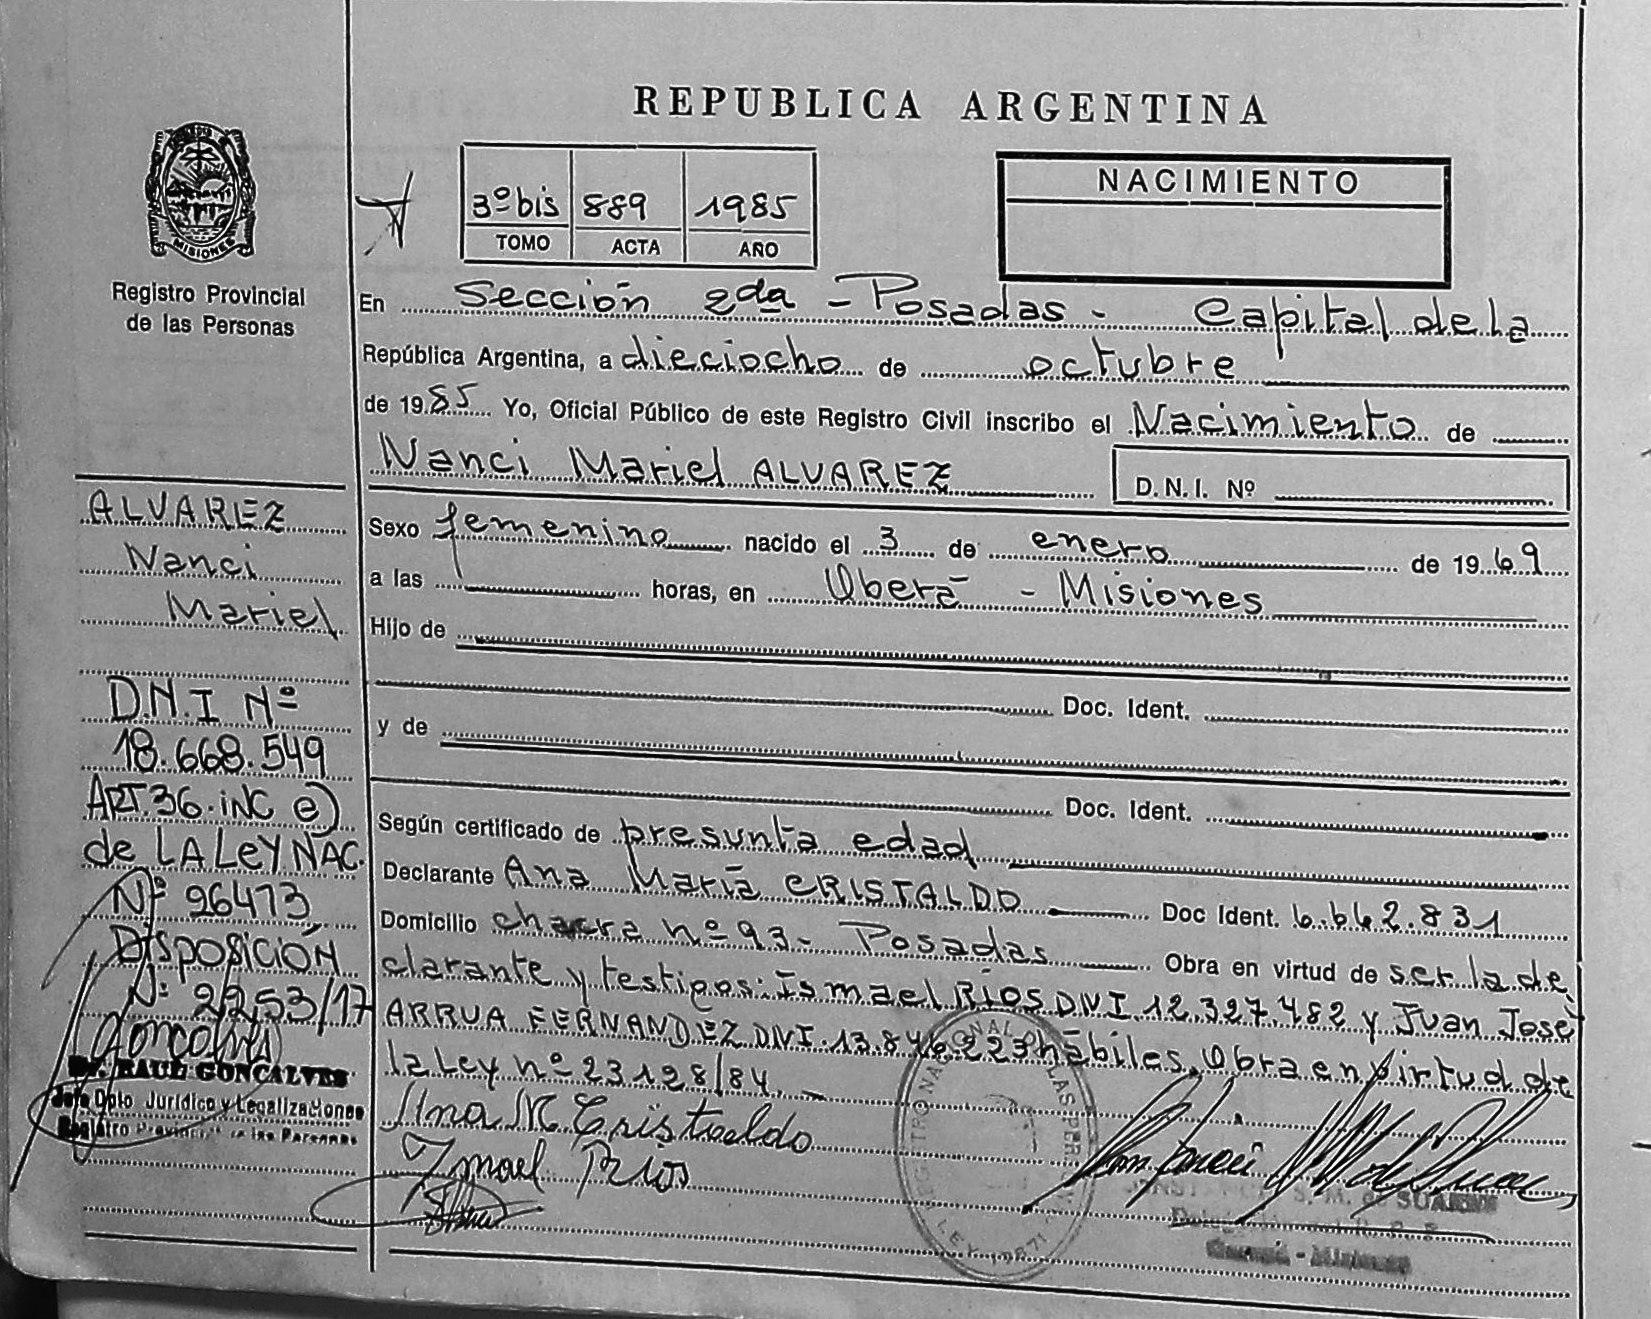 REPUBLICA ARGENTINA
MISIONES
Registro Provincial
de las Personas
3º bis 889 1985
TOMO ACTA AÑO
NACIMIENTO
En Sección 2da - Posadas - Capital de la
República Argentina, a dieciocho de octubre
de 1985 Yo, Oficial Público de este Registro Civil inscribo el Nacimiento de
Nanci Mariel ALVAREZ
D.N.I. Nº
Sexo femenino nacido el 3 de enero de 1969
a las horas, en Oberá - Misiones
Hijo de
Doc. Ident.
y de
Doc. Ident.
Según certificado de presunta edad
Declarante Ana María CRISTALDO Doc Ident. 6.642.831
Domicilio chacra nº 93 - Posadas Obra en virtud de ser la de
clarante y testigos: Ismael RÍOS DNI 12.327.482 y Juan José
ARRUA FERNANDEZ DNI. 13.846.223 hábiles. Obra en virtud de
la Ley nº 23128/84.
Ana M Cristaldo
Ismael Ríos
ALVAREZ
Nanci
Mariel
D.N.I Nº
18.668.549
ART.36.iNC e)
de LA LeY NAC.
Nº 26413
DISPOSICIÓN
Nº 2253/17
Dr. RAUL GONCALVES
Jefe Dpto Jurídico y Legalizaciones
Registro Provincial de las Personas
REGISTRO NACIONAL DE LAS PER
LEY
S. M. de SUAREZ
- Misiones